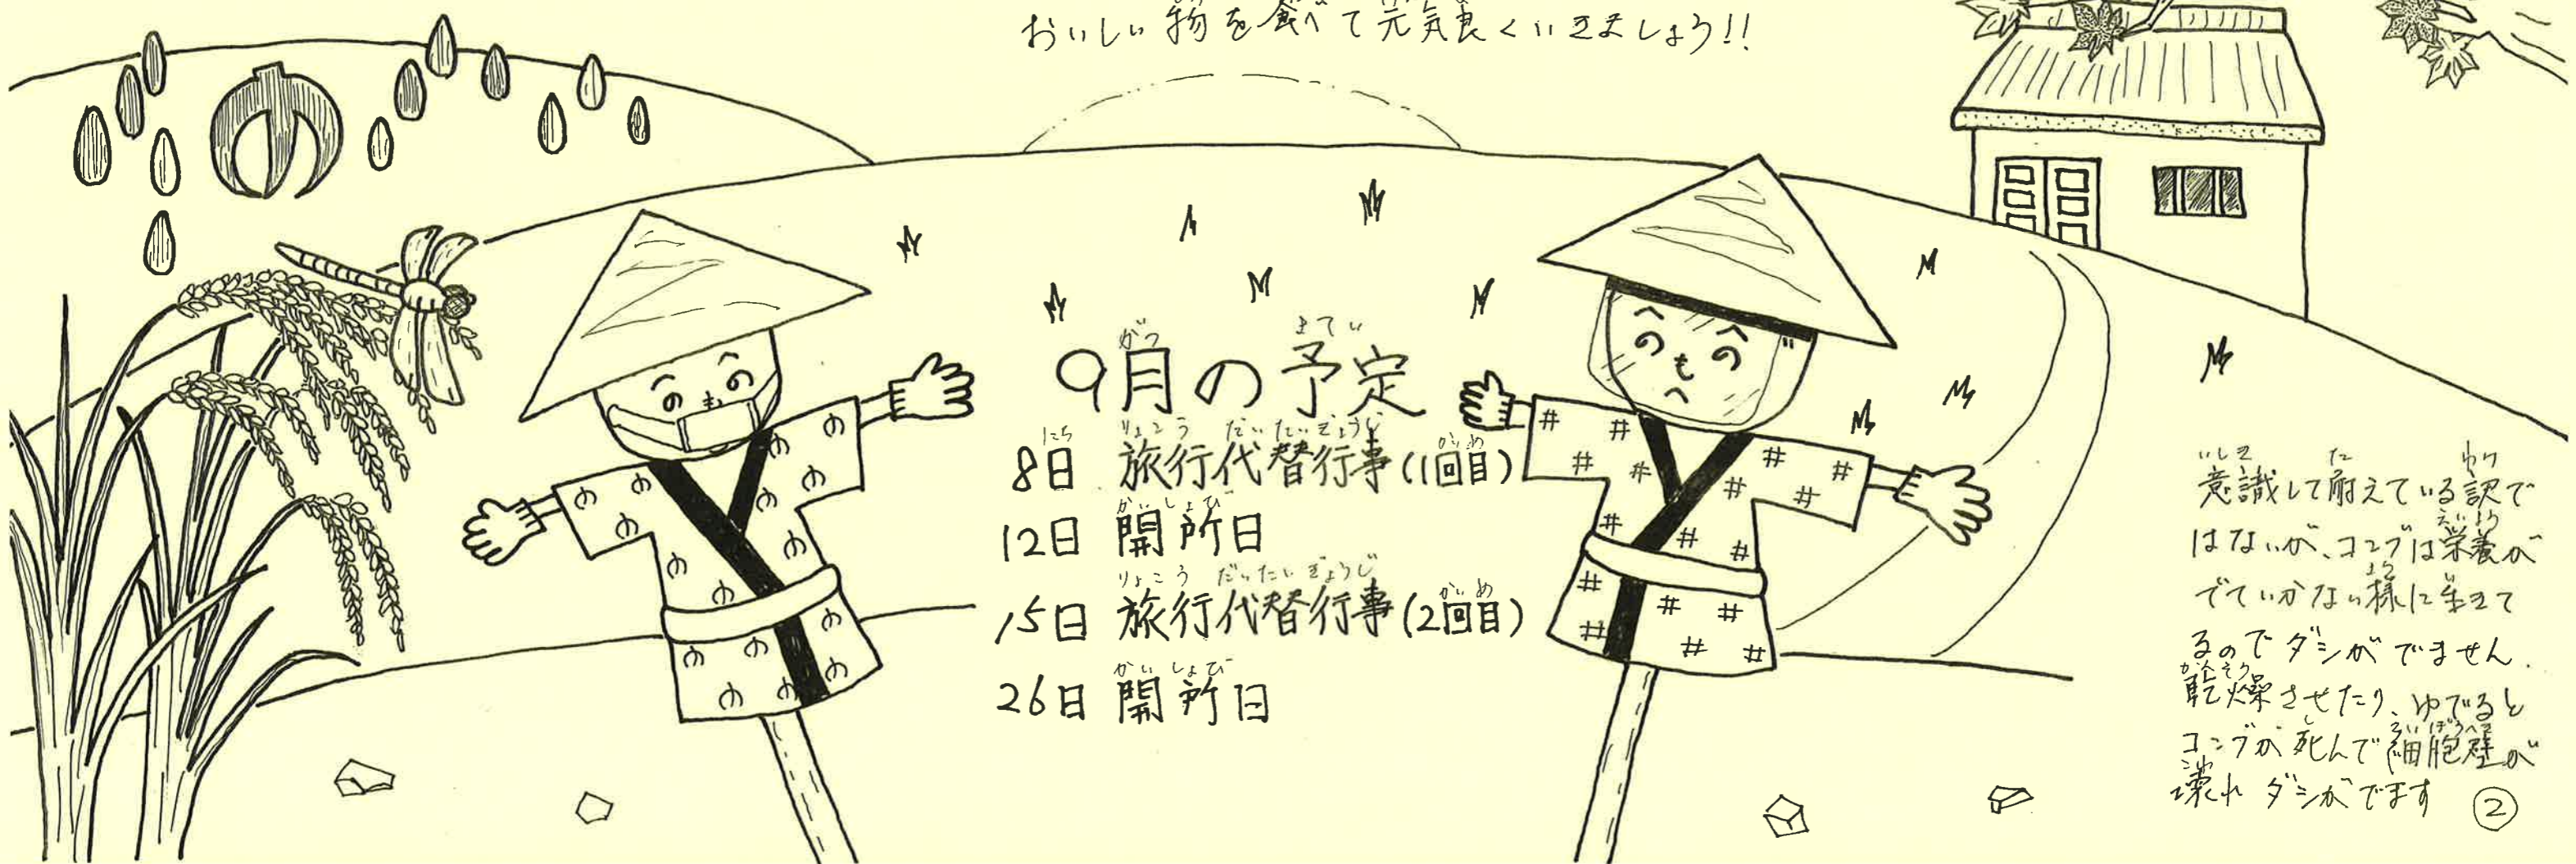 おいしい物を食べて元気良くいきましょう!!
9月の予定
8日 旅行代替行事(1回目)
12日 開所日
15日 旅行代替行事(2回目)
26日 開所日
意識して耐えている訳で
はないが、コンブは栄養が
でていかない様に生きて
るのでダシがでません.
乾燥させたり、ゆでると
コンブが死んで細胞壁が
壊れ ダシがでます ②